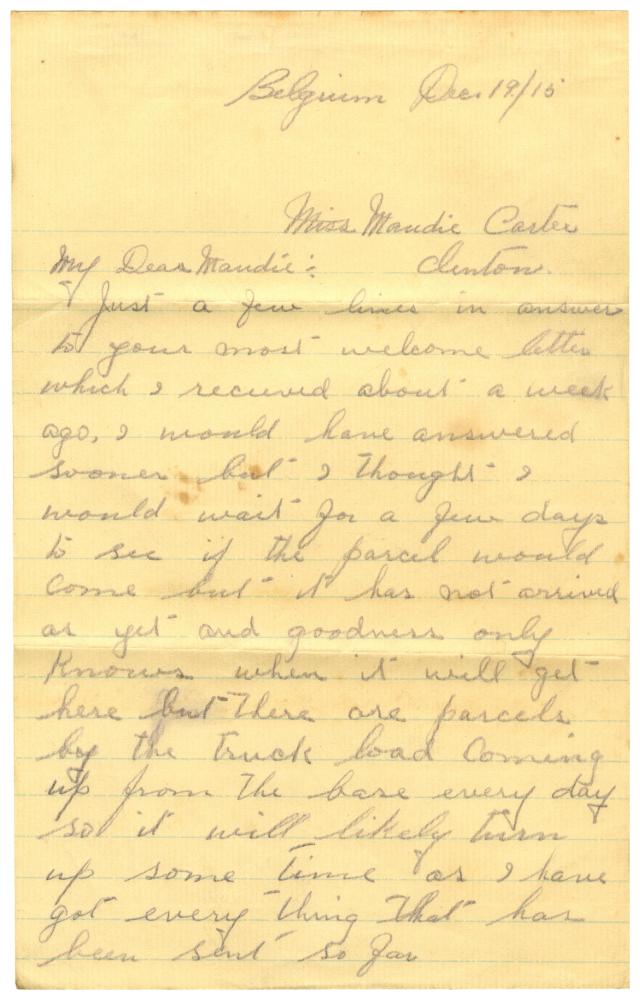 Belgium Dec 19/15
Miss Maudie Carter
My Dear Maudie:
Clinton.
Just a few lines in answer
to your most welcome letter
which I recieved about a week
ago, I would have answered
sooner but I thought I
would wait for a few days
to see if the parcel would
come but it has not arrived
as yet and goodness only
knows when it will get
here but there are parcels
by the truck load coming
up from the base every day
so it will likely turn
up some time as I have
got every thing that has
been sent so far